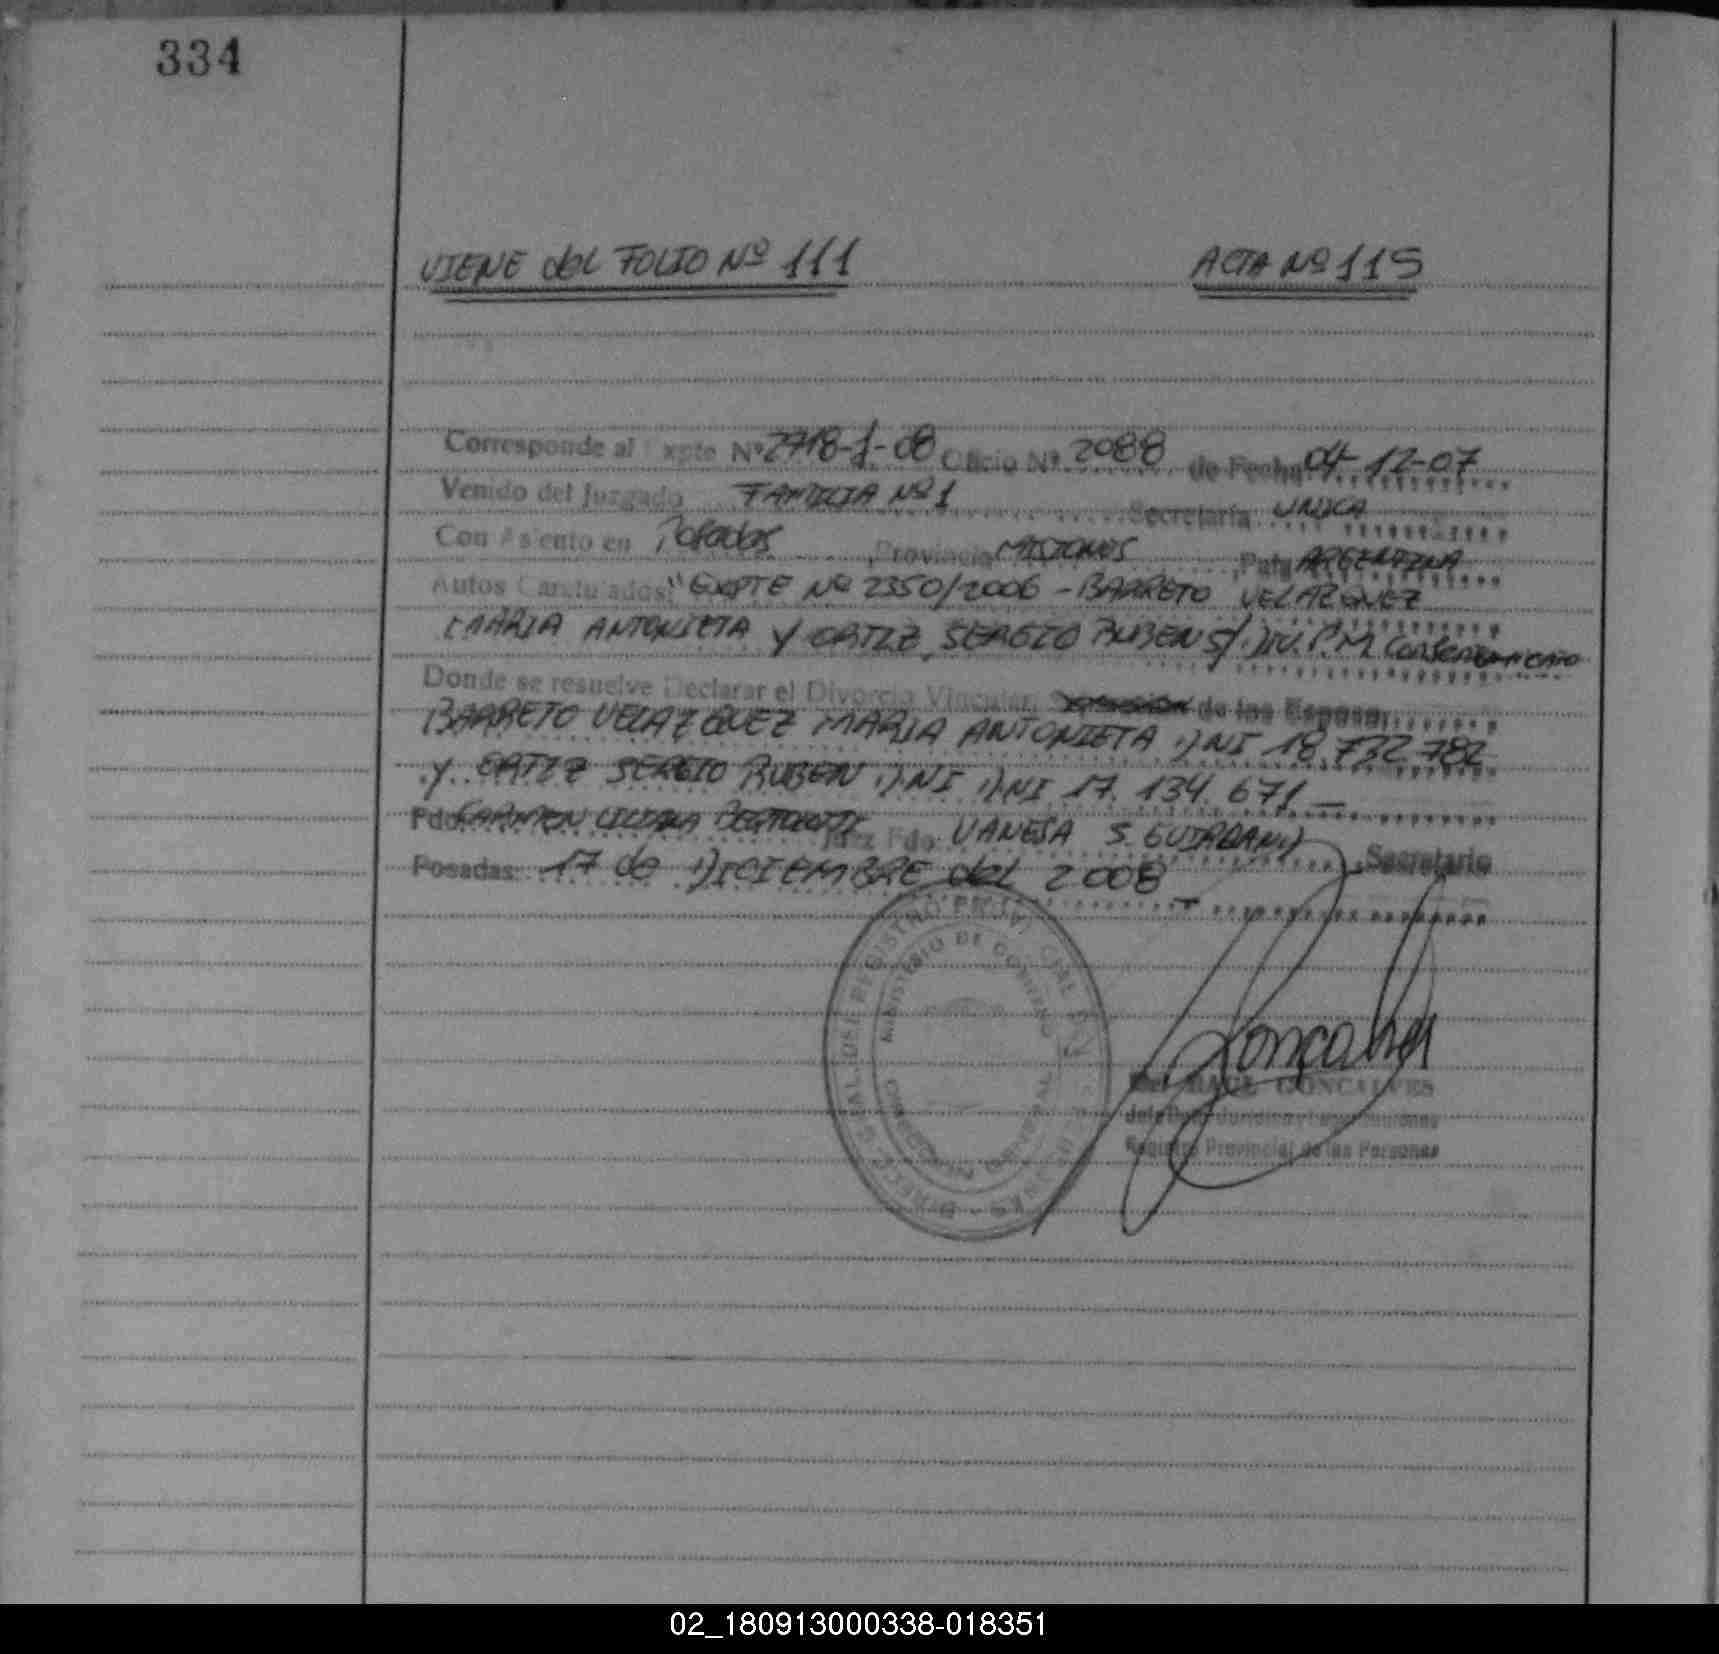 334
VIENE del FOLIO Nº 111 ACTA Nº 115
Corresponde al Expte Nº 2718-1-08 Oficio Nº 2088 de Fecha 04-12-07
Venido del Juzgado FAMILIA Nº 1 Secretaria UNICA
Con Asiento en Posadas, Provincia MISIONES, Pais ARGENTINA
Autos Caratulados: "EXPTE Nº 2350/2006 - BARRETO VELAZQUEZ
MARIA ANTONIETA Y ORTIZ, SERGIO RUBEN S/ DIV. P.M
Donde se resuelve Declarar el Divorcio Vincular de los Esposos
BARRETO VELAZQUEZ MARIA ANTONIETA DNI 18.732.782
Y ORTIZ SERGIO RUBEN DNI DNI 17.134.671 —
Fdo. CARMEN LILIANA Juez Fdo. VANESA S. Secretario
Posadas: 17 de DICIEMBRE del 2008 -
MINISTERIO DE GOBIERNO
RAUL GONCALVES
Registro Provincial de las Personas
02_180913000338-018351